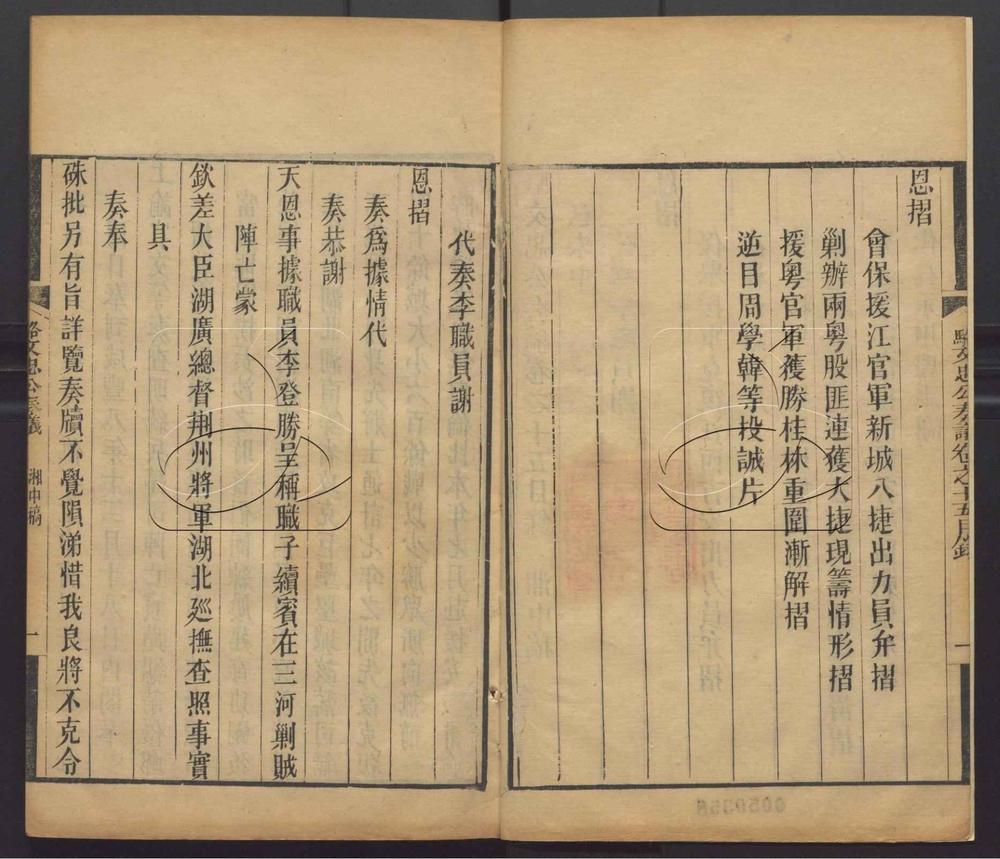 恩摺
會保援江官軍新城八捷出力員弁摺
剿辦兩粵股匪連獲大捷現籌情形摺
援粵官軍獲勝桂林重圍漸解摺
逆目周學韓等投誠片
駱文忠公奏議卷之十五目錄
一
代奏李職員謝
恩摺
奏爲據情代
奏恭謝
天恩事據職員李登勝呈稱職子續賓在三河剿賊
陣亡蒙
欽差大臣湖廣總督荆州將軍湖北廵撫查照事實
具
奏奉
硃批另有旨詳覽奏牘不覺隕涕惜我良將不克令
駱文忠公奏議
湘中稿
一
0050356